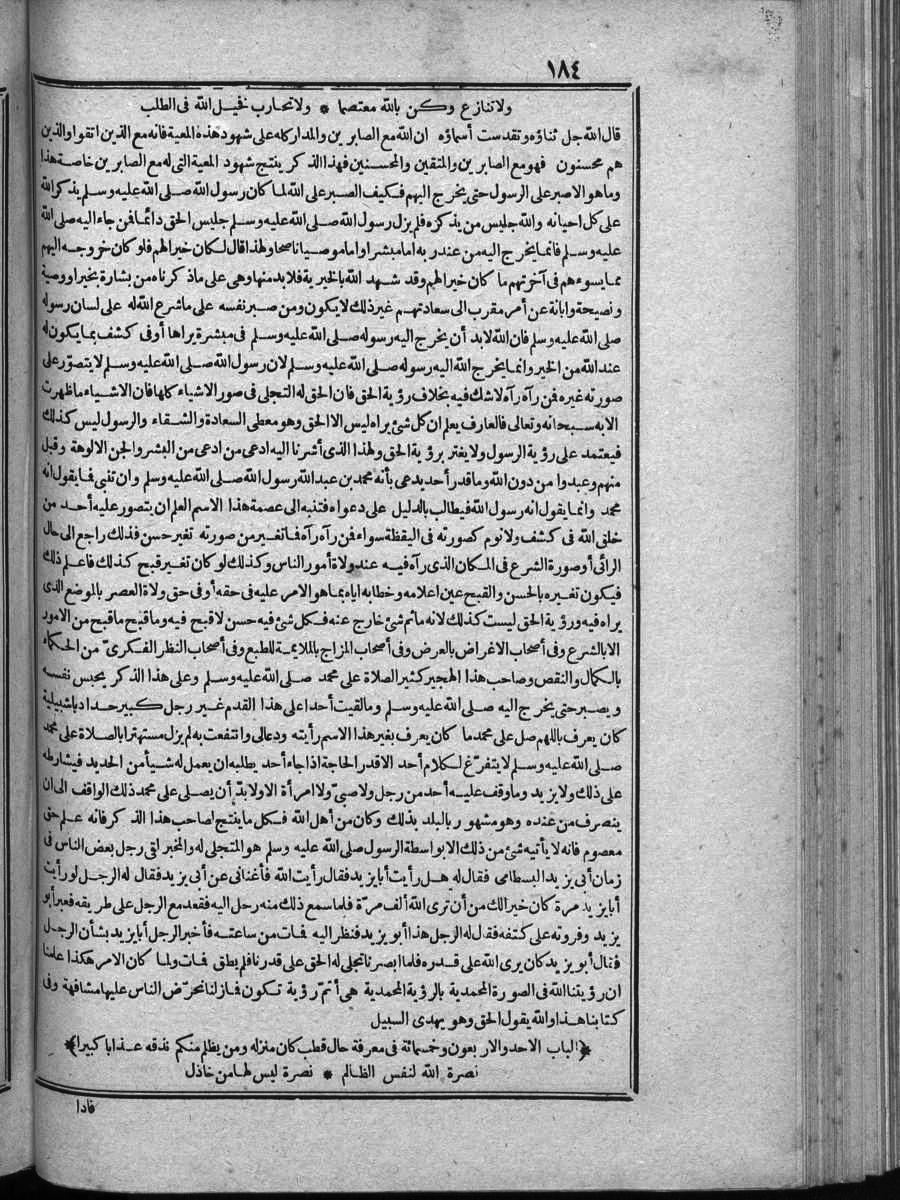 ١٨٤
ولا تنازع وكن بالله معتصما * ولا تحارب فخيل الله في الطلب
قال الله جل ثناؤه وتقدست أسماؤه ان الله مع الصابرين والمدار كله على شهود هذه المعية فانه مع الذين اتقوا والذين
هم محسنون فهو مع الصابرين والمتقين والمحسنين فهذا الذكر ينتج شهود المعية التي له مع الصابرين خاصة هذا
وما هو الاصبر على الرسول حتى يخرج اليهم فكيف الصبر على الله لما كان رسول الله صلى الله عليه وسلم يذكر الله
على كل احيانه والله جليس من يذكره فلم يزل رسول الله صلى الله عليه وسلم جليس الحق دائما فمن جاء اليه صلى الله
عليه وسلم فانما يخرج اليه من عند ربه اما مبشرا واما موصيا ناصحا ولهذا قال لكان خيرا لهم فلو كان خروجه اليهم
بما يسوءهم في آخرتهم ما كان خيرا لهم وقد شهد الله بالخيرية فلا بد منها وهى على ما ذكرناه من بشارة بخير أو وصية
ونصيحة وابانة عن أمر مقرب الى سعادتهم غير ذلك لا يكون ومن صبر نفسه على ما شرع الله له على لسان رسوله
صلى الله عليه وسلم فان الله لا بد أن يخرج اليه رسوله صلى الله عليه وسلم في مبشرة يراها أو في كشف بما يكون له
عند الله من الخير وانما يخرج الله اليه رسوله صلى الله عليه وسلم لان رسول الله صلى الله عليه وسلم لا يتصوّر على
صورته غيره فمن رآه رآه لا شك فيه بخلاف رؤية الحق فان الحق له التجلى في صور الاشياء كلها فان الاشياء ما ظهرت
الا به سبحانه وتعالى فالعارف يعلم ان كل شئ يراه ليس الا الحق وهو معطى السعادة والشقاء والرسول ليس كذلك
فيعتمد على رؤية الرسول ولا يغتر برؤية الحق ولهذا الذى أشرنا اليه ادعى من ادعى من البشر والجن الالوهة وقبل
منهم وعبدوا من دون الله وما قدر أحد يدعى بأنه محمد بن عبد الله رسول الله صلى الله عليه وسلم وان تنبى فما يقول انه
محمد وانما يقول انه رسول الله فيطالب بالدليل على دعواه فتنبه الى عصمة هذا الاسم العلم ان يتصور عليه أحد من
خلق الله في كشف ولا نوم كصورته في اليقظة سواء فمن رآه رآه فما تغير من صورته تغير حسن فذلك راجع الى حال
الرائى أو صورة الشرع في المكان الذى رآه فيه عند ولاة أمور الناس وكذلك لو كان تغير قبح كذلك فاعلم ذلك
فيكون تغيره بالحسن والقبح عين اعلامه وخطابه اياه بما هو الامر عليه في حقه أو في حق ولاة العصر بالموضع الذى
يراه فيه ورؤية الحق ليست كذلك لانه ما ثم شئ خارج عنه فكل شئ فيه حسن لا قبح فيه وما قبح ما قبح من الامور
الا بالشرع وفي أصحاب الاغراض بالعرض وفي أصحاب المزاج بالملايمة للطبع وفي أصحاب النظر الفكرىّ من الحكماء
بالكمال والنقص وصاحب هذا الهجير كثير الصلاة على محمد صلى الله عليه وسلم وعلى هذا الذكر يحبس نفسه
ويصبر حتى يخرج اليه صلى الله عليه وسلم وما لقيت أحدا على هذا القدم غير رجل كبير حداد باشبيلية
كان يعرف باللهم صل على محمد ما كان يعرف بغير هذا الاسم رأيته ودعالى وانتفعت به لم يزل مستهترا بالصلاة على محمد
صلى الله عليه وسلم لا يتفرّغ لكلام أحد الا قدر الحاجة اذا جاء أحد يطلبه ان يعمل له شيأ من الحديد فيشارطه
على ذلك ولا يزيد وما وقف عليه أحد من رجل ولا صبيّ ولا امرأة الا ولا بدّ أن يصلى على محمد ذلك الواقف الى ان
ينصرف من عنده وهو مشهور بالبلد بذلك وكان من أهل الله فكل ما ينتج لصاحب هذا الذكر فانه علم حق
معصوم فانه لا يأتيه شئ من ذلك الا بواسطة الرسول صلى الله عليه وسلم هو المتجلى له والمخبر اتى رجل بعض الناس في
زمان أبى يزيد البسطامى فقال له هل رأيت أبا يزيد فقال رأيت الله فأغنانى عن أبى يزيد فقال له الرجل لو رأيت
أبا يزيد مرة كان خيرا لك من أن ترى الله ألف مرّة فلما سمع ذلك منه رحل اليه فقعد مع الرجل على طريقه فعبر أبو
يزيد وفروته على كتفه فقال له الرجل هذا أبو يزيد فنظر اليه فمات من ساعته فأخبر الرجل أبا يزيد بشأن الرجل
فقال أبو يزيد كان يرى الله على قدره فلما أبصرنا تجلى له الحق على قدرنا فلم يطق فمات ولما كان الامر هكذا علمنا
ان رؤيتنا الله في الصورة المحمدية بالرؤية المحمدية هي أتمّ رؤية تكون فما زلنا نحرّض الناس عليها مشافهة وفي
كتابنا هذا والله يقول الحق وهو يهدى السبيل
﴿الباب الاحد والاربعون وخمسمائة في معرفة حال قطب كان منزله ومن يظلم منكم نذقه عذابا كبيرا﴾
نصرة الله لنفس الظالم * نصرة ليس لها من خاذل
فاذا